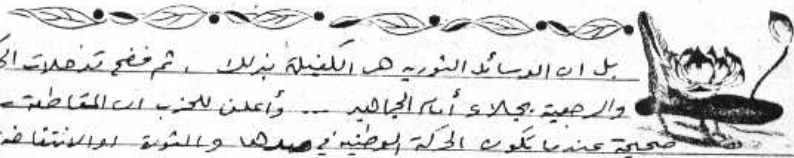 بل ان الوسائل الثورية هي الكفيلة بذلك . ثم فضح تدخلات
والرجعية بجلاء أمام الجماهير ... وأعلن للحزب ان المقاطعة
صحيحة عندما تكون الحركة الوطنية في مدها والثورة او الانتفاضة